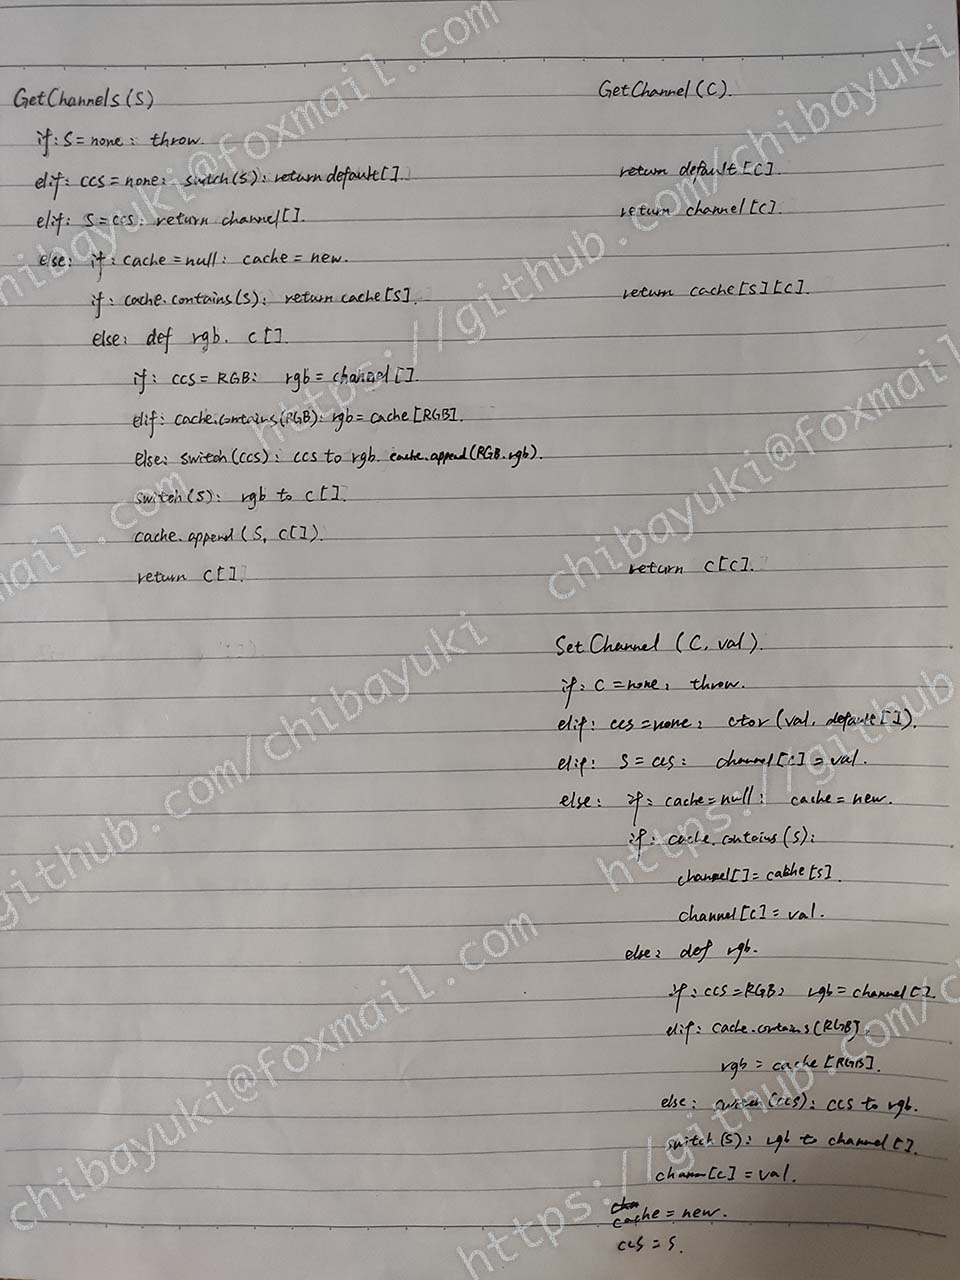 GetChannels(S)
if: S = none: throw.
elif: ccs = none: switch(s): return default[].
elif: S = ccs: return channel[].
else: if: cache = null: cache = new.
if: cache.contains(S): return cache[S].
else: def rgb. c[].
if: ccs = RGB: rgb = channel[].
elif: cache.contains(RGB): rgb = cache[RGB].
else: switch(ccs): ccs to rgb. cache.append(RGB.rgb).
switch(S): rgb to c[].
cache.append(S, c[]).
return c[].
GetChannel(C).
return default[C].
return channel[C].
return cache[S][C].
return c[C].
Set Channel (C, val).
if: C = none: throw.
elif: ccs = none: ctor(val, default[]).
elif: S = ccs: channel[C] = val.
else: if: cache = null: cache = new.
if: cache.contains(S):
channel[] = cache[S].
channel[C] = val.
else: def rgb.
if: ccs = RGB: rgb = channel[].
elif: cache.contains(RGB).
rgb = cache[RGB].
else: switch(ccs): ccs to rgb.
switch(S): rgb to channel[].
chann[C] = val.
cache = new.
ccs = S.
chibayuki@foxmail.com
https://github.com/chibayuki